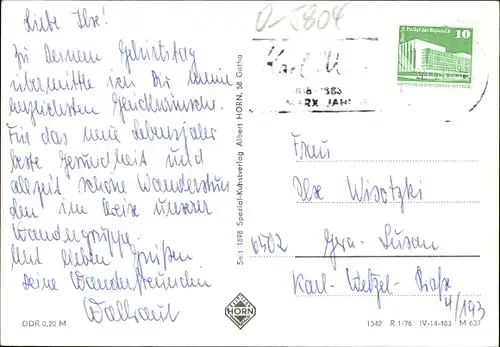 Liebe Ilse!
Zu Deinem Geburtstag
übermittle ich Dir meine
herzlichsten Glückwünsche.
Für das neue Lebensjahr
beste Gesundheit und
allzeit schöne Wanderstun
den im Kreise unserer
Wandergruppe.
Mit lieben Grüßen
Deine Wanderfreundin
Waltraut
DDR 0,20 M
Seit 1898 Spezial-Kunstverlag Albert HORN, 58 Gotha
HORN
O-5804
Karl M
1883
MARX JAH
10
Berlin Palast der Republik
Frau
Ilse Wisotzki
6502 Gera-Lusan
Karl-Wetzel-Straße
4/193
1542 R 1/76 IV-14-483 M 637